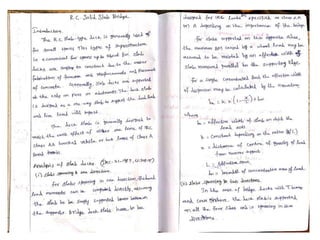 R.C. Solid Slab Bridge.
Introduction
The R.C. Slab type deck, is generally used
for small spans. This type of superstructure
is economical for spans up to
decks are simpler to construct due to the easier
fabrication of formwork and reinforcements and placement
of concrete. Generally, Slab decks are supported
at the ends on piers or abutments. The deck slab
is designed as a one way slab to support the dead load
and live load with impact.
The deck slab is generally designed to
resist the worst effect of either one lane of IRC
class AA tracked vehicle or two lanes of class A
load
Analysis of slab decks
(i) slab spanning in one direction
For slabs spanning in one direction, the
moments can be computed directly, assuming
the slab to be simply supported between
the supports. Bridge deck slabs have to be
designed for IRC loads, specified as class AA
or A depending on the importance of the bridge
For slabs supported on two opposite sides,
the maximum BM caused by a wheel load may be
assumed to be resisted by an effective width of
slab measured parallel to the supporting edge.
For a single concentrated load the effective width
of dispersion may be calculated by the equation,
where
be = effective width of slab on which the
load acts
k = Constant depending on the ratio (B/L)
x = distance of centre of gravity of load
from nearer support
L = effective span
bw = breadth of concentration area of load.
(ii) slab spanning in two directions
In the case of bridge decks with T beams
and cross girders, the deck slab is supported
on all the four sides and is spanning in two
directions.